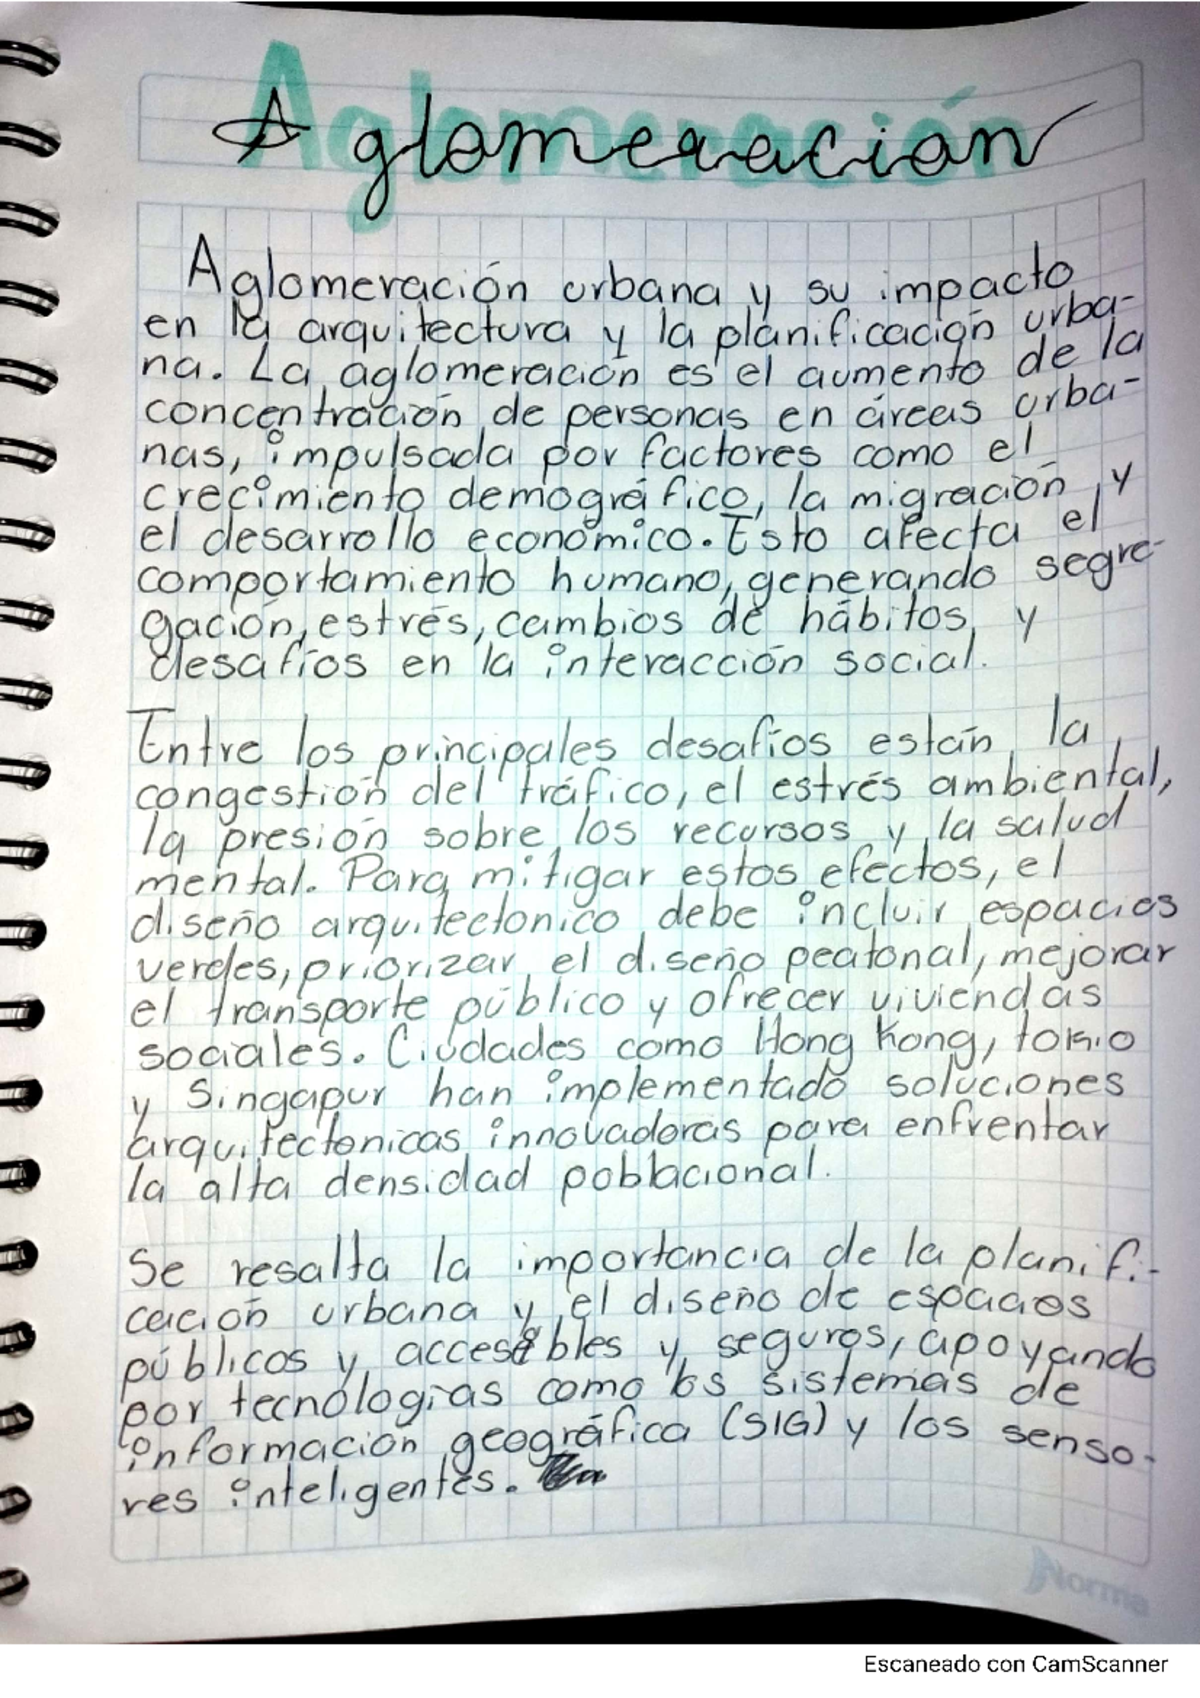 Aglomeración
Aglomeración urbana y su impacto
en la arquitectura y la planificación urba-
na. La aglomeración es el aumento de la
concentración de personas en áreas urba-
nas, impulsada por factores como el
crecimiento demográfico, la migración y
el desarrollo económico. Esto afecta el
comportamiento humano, generando segre-
gación, estrés, cambios de hábitos, y
desafíos en la interacción social.
Entre los principales desafíos están la
congestión del tráfico, el estrés ambiental,
la presión sobre los recursos y la salud
mental. Para mitigar estos efectos, el
diseño arquitectonico debe incluir espacios
verdes, priorizar el diseño peatonal, mejorar
el transporte público y ofrecer viviendas
sociales. Ciudades como Hong Kong, tokio
y Singapur han implementado soluciones
arquitectonicas innovadoras para enfrentar
la alta densidad poblacional.
Se resalta la importancia de la planifi-
cación urbana y el diseño de espacios
públicos y accesibles y seguros, apoyando
por tecnologías como los sistemas de
información geográfica (SIG) y los senso-
res inteligentes.
Norma
Escaneado con CamScanner